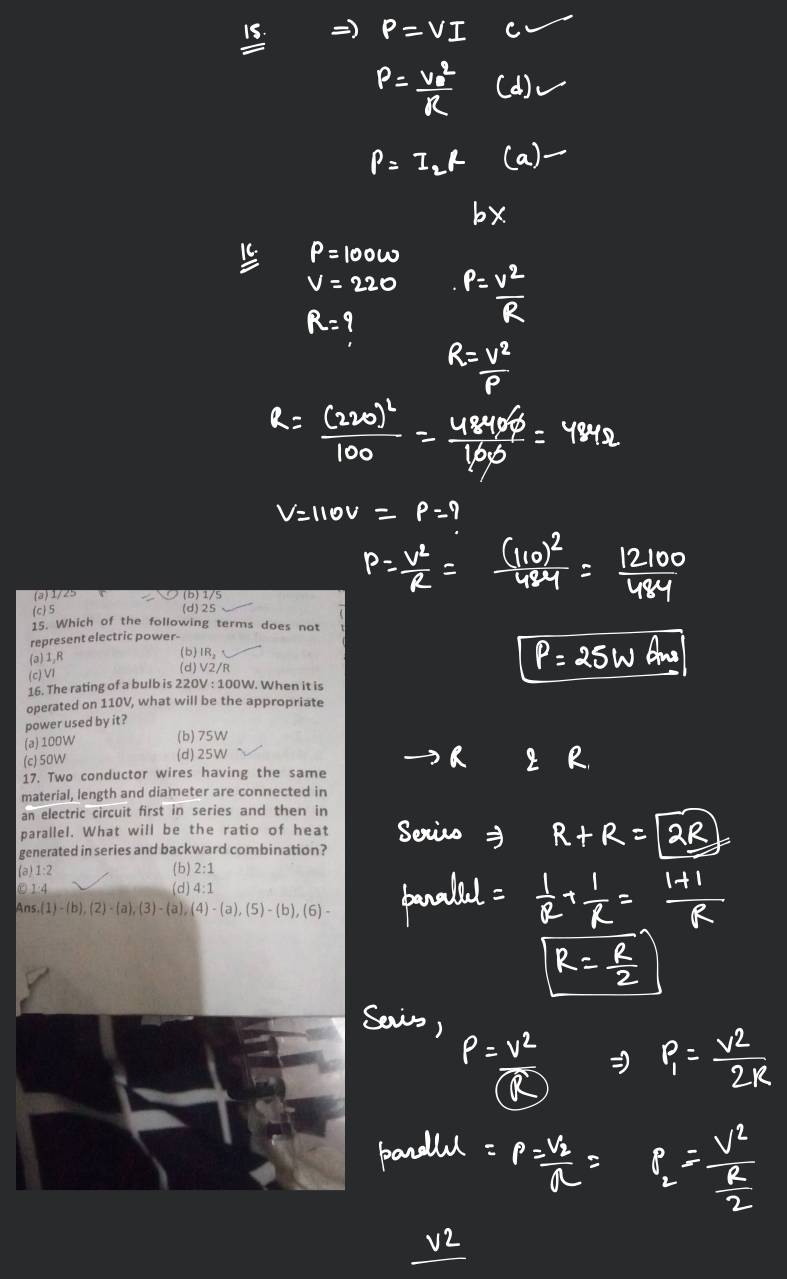 15. => P = VI c ✓
P = V²/R (d) ✓
P = I₂R (a) –
bx
16. P = 100W
V = 220
R = ?
P = V²/R
R = V²/P
R = (220)²/100 = 48400/100 = 484Ω
V = 110V = P = ?
P = V²/R = (110)²/484 = 12100/484
P = 25W Ans
(a) 1/25 (b) 1/5
(c) 5 (d) 25
15. Which of the following terms does not
represent electric power-
(a) 1,R (b) IR,
(c) VI (d) V2/R
16. The rating of a bulb is 220V : 100W. When it is
operated on 110V, what will be the appropriate
power used by it?
(a) 100W (b) 75W
(c) 50W (d) 25W
17. Two conductor wires having the same
material, length and diameter are connected in
an electric circuit first in series and then in
parallel. What will be the ratio of heat
generated in series and backward combination?
(a) 1:2 (b) 2:1
© 1:4 (d) 4:1
Ans.(1) - (b), (2) - (a), (3) - (a), (4) - (a), (5) - (b), (6) -
→ R & R.
Series ⇒ R + R = 2R
parallel = 1/R + 1/R = 1+1/R
R = R/2
Series,
P = V²/R ⇒ P₁ = V²/2R
parallel = P = V₂/R = P₂ = V²/R/2
V2